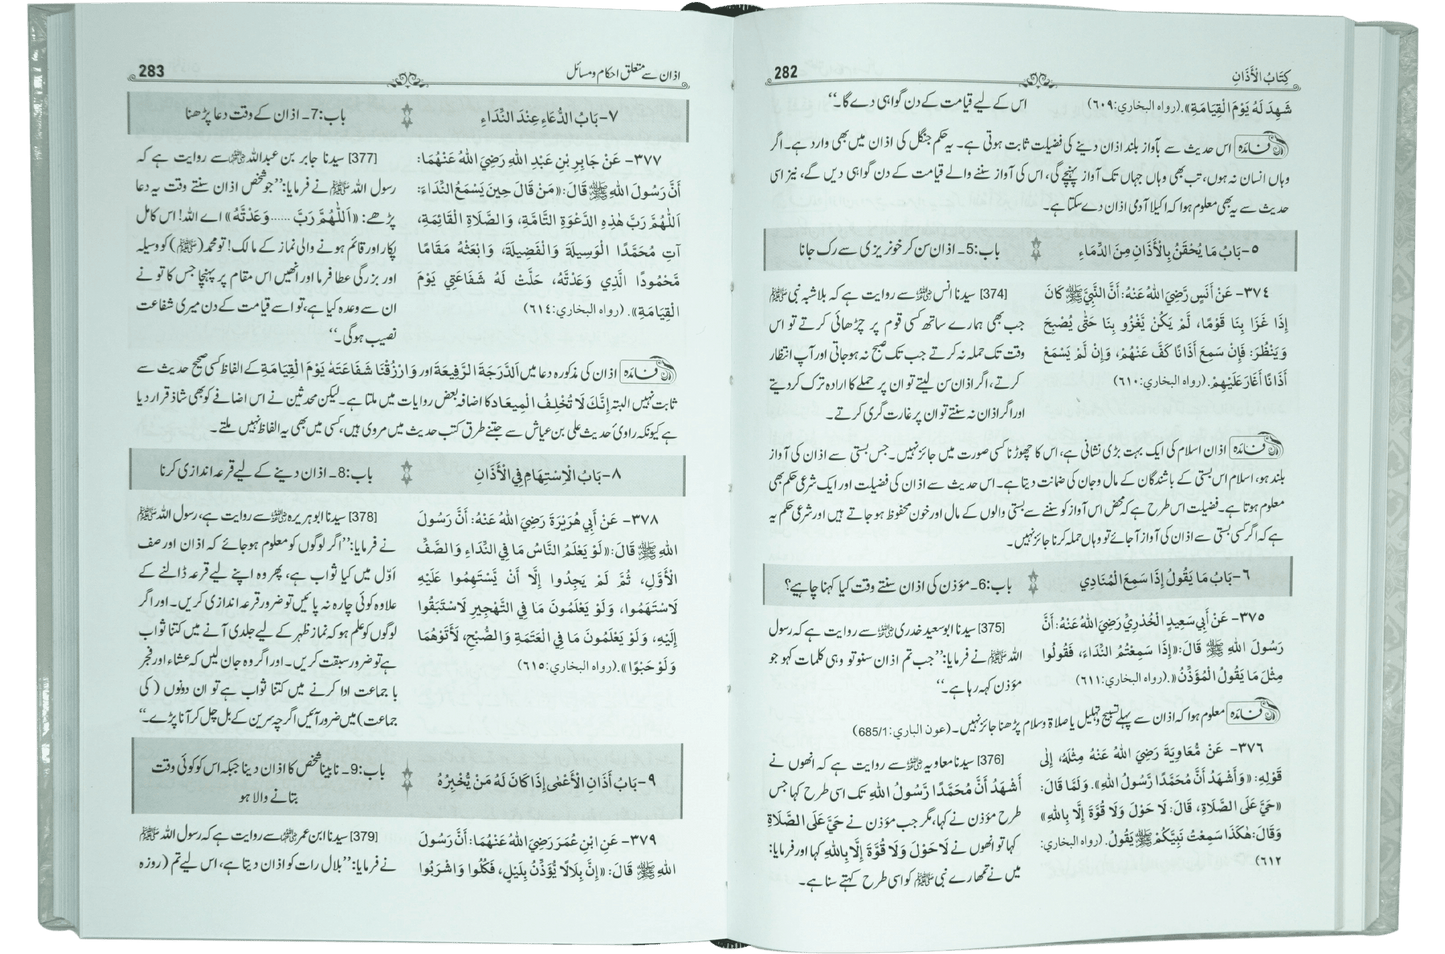 كِتَابُ الْأَذَانِ
282
شَهِدَ لَهُ يَوْمَ الْقِيَامَةِ». (رواه البخاري: ٦٠٩)
اس کے لیے قیامت کے دن گواہی دے گا۔‘‘
فائدہ اس حدیث سے بآواز بلند اذان دینے کی فضیلت ثابت ہوتی ہے۔ یہ حکم جنگل کی اذان میں بھی وارد ہے۔ اگر
وہاں انسان نہ ہوں، تب بھی وہاں جہاں تک آواز پہنچے گی، اس کی آواز سننے والے قیامت کے دن گواہی دیں گے، نیز اسی
حدیث سے یہ بھی معلوم ہوا کہ اکیلا آدمی اذان دے سکتا ہے۔
٥- بَابُ مَا يُحْقَنُ بِالْأَذَانِ مِنَ الدِّمَاءِ
باب: 5۔ اذان سن کر خونریزی سے رک جانا
٣٧٤- عَنْ أَنَسٍ رَّضِيَ اللهُ عَنْهُ: أَنَّ النَّبِيَّ ﷺ كَانَ
إِذَا غَزَا بِنَا قَوْمًا، لَمْ يَكُنْ يَغْزُو بِنَا حَتَّى يُصْبِحَ
وَيَنْظُرَ: فَإِنْ سَمِعَ أَذَانًا كَفَّ عَنْهُمْ، وَإِنْ لَمْ يَسْمَعْ
أَذَانًا أَغَارَ عَلَيْهِمْ. (رواه البخاري: ٦١٠)
[374] سیدنا انس رضی اللہ عنہ سے روایت ہے کہ بلاشبہ نبی ﷺ
جب بھی ہمارے ساتھ کسی قوم پر چڑھائی کرتے تو اس
وقت تک حملہ نہ کرتے جب تک صبح نہ ہو جاتی اور آپ انتظار
کرتے، اگر اذان سن لیتے تو ان پر حملے کا ارادہ ترک کر دیتے
اور اگر اذان نہ سنتے تو ان پر غارت گری کرتے۔
فائدہ اذان اسلام کی ایک بہت بڑی نشانی ہے، اس کا چھوڑنا کسی صورت میں جائز نہیں۔ جس بستی سے اذان کی آواز
بلند ہو، اسلام اس بستی کے باشندگان کے مال و جان کی ضمانت دیتا ہے۔ اس حدیث سے اذان کی فضیلت اور ایک شرعی حکم بھی
معلوم ہوتا ہے۔ فضیلت اس طرح ہے کہ محض اس آواز کو سننے سے بستی والوں کے مال اور خون محفوظ ہو جاتے ہیں اور شرعی حکم یہ
ہے کہ اگر کسی بستی سے اذان کی آواز آ جائے تو وہاں حملہ کرنا جائز نہیں۔
٦- بَابُ مَا يَقُولُ إِذَا سَمِعَ الْمُنَادِي
باب: 6۔ مؤذن کی اذان سنتے وقت کیا کہنا چاہیے؟
٣٧٥- عَنْ أَبِي سَعِيدٍ الْخُدْرِيِّ رَضِيَ اللهُ عَنْهُ: أَنَّ
رَسُولَ اللهِ ﷺ قَالَ: «إِذَا سَمِعْتُمُ النِّدَاءَ، فَقُولُوا
مِثْلَ مَا يَقُولُ الْمُؤَذِّنُ». (رواه البخاري: ٦١١)
[375] سیدنا ابوسعید خدری رضی اللہ عنہ سے روایت ہے کہ رسول
اللہ ﷺ نے فرمایا: ’’جب تم اذان سنو تو وہی کلمات کہو جو
مؤذن کہہ رہا ہے۔‘‘
فائدہ معلوم ہوا کہ اذان سے پہلے تسبیح و تہلیل یا صلاۃ و سلام پڑھنا جائز نہیں۔ (عون الباري: 685/1)
٣٧٦- عَنْ مُّعَاوِيَةَ رَضِيَ اللهُ عَنْهُ مِثْلَهُ، إِلَى
قَوْلِهِ: «وَأَشْهَدُ أَنَّ مُحَمَّدًا رَّسُولُ اللهِ». وَلَمَّا قَالَ:
«حَيَّ عَلَى الصَّلَاةِ، قَالَ: لَا حَوْلَ وَلَا قُوَّةَ إِلَّا بِاللهِ»
وَقَالَ: هٰكَذَا سَمِعْتُ نَبِيَّكُمْ ﷺ يَقُولُ. (رواه البخاري:
٦١٢)
[376] سیدنا معاویہ رضی اللہ عنہ سے روایت ہے کہ انھوں نے
أَشْهَدُ أَنَّ مُحَمَّدًا رَّسُولُ اللهِ تک اسی طرح کہا جس
طرح مؤذن نے کہا، مگر جب مؤذن نے حَيَّ عَلَى الصَّلَاةِ
کہا تو انھوں نے لَا حَوْلَ وَلَا قُوَّةَ إِلَّا بِاللهِ کہا اور فرمایا:
میں نے تمھارے نبی ﷺ کو اسی طرح کہتے سنا ہے۔
اذان سے متعلق احکام و مسائل
283
٧- بَابُ الدُّعَاءِ عِنْدَ النِّدَاءِ
باب: 7۔ اذان کے وقت دعا پڑھنا
٣٧٧- عَنْ جَابِرِ بْنِ عَبْدِ اللهِ رَضِيَ اللهُ عَنْهُمَا:
أَنَّ رَسُولَ اللهِ ﷺ قَالَ: «مَنْ قَالَ حِينَ يَسْمَعُ النِّدَاءَ:
اَللّٰهُمَّ رَبَّ هٰذِهِ الدَّعْوَةِ التَّامَّةِ، وَالصَّلَاةِ الْقَائِمَةِ،
آتِ مُحَمَّدًا الْوَسِيلَةَ وَالْفَضِيلَةَ، وَابْعَثْهُ مَقَامًا
مَّحْمُودًا الَّذِي وَعَدْتَّهُ، حَلَّتْ لَهُ شَفَاعَتِي يَوْمَ
الْقِيَامَةِ». (رواه البخاري: ٦١٤)
[377] سیدنا جابر بن عبداللہ رضی اللہ عنہما سے روایت ہے کہ
رسول اللہ ﷺ نے فرمایا: ’’جو شخص اذان سنتے وقت یہ دعا
پڑھے: «اَللّٰهُمَّ رَبَّ ...... وَعَدْتَّهُ» اے اللہ! اس کامل
پکار اور قائم ہونے والی نماز کے مالک! تو محمد (ﷺ) کو وسیلہ
اور بزرگی عطا فرما اور انھیں اس مقام پر پہنچا جس کا تو نے
ان سے وعدہ کیا ہے، تو اسے قیامت کے دن میری شفاعت
نصیب ہوگی۔‘‘
فائدہ اذان کی مذکورہ دعا میں اَلدَّرَجَةَ الرَّفِيعَةَ اور وَارْزُقْنَا شَفَاعَتَهُ يَوْمَ الْقِيَامَةِ کے الفاظ کسی صحیح حدیث سے
ثابت نہیں البتہ إِنَّكَ لَا تُخْلِفُ الْمِيعَادَ کا اضافہ بعض روایات میں ملتا ہے۔ لیکن محدثین نے اس اضافے کو بھی شاذ قرار دیا
ہے کیونکہ راویٔ حدیث علی بن عیاش سے جتنے طرق کتب حدیث میں مروی ہیں، کسی میں بھی یہ الفاظ نہیں ملتے۔
٨- بَابُ الْاِسْتِهَامِ فِي الْأَذَانِ
باب: 8۔ اذان دینے کے لیے قرعہ اندازی کرنا
٣٧٨- عَنْ أَبِي هُرَيْرَةَ رَضِيَ اللهُ عَنْهُ: أَنَّ رَسُولَ
اللهِ ﷺ قَالَ: «لَوْ يَعْلَمُ النَّاسُ مَا فِي النِّدَاءِ وَالصَّفِّ
الْأَوَّلِ، ثُمَّ لَمْ يَجِدُوا إِلَّا أَنْ يَّسْتَهِمُوا عَلَيْهِ
لَاسْتَهَمُوا، وَلَوْ يَعْلَمُونَ مَا فِي التَّهْجِيرِ لَاسْتَبَقُوا
إِلَيْهِ، وَلَوْ يَعْلَمُونَ مَا فِي الْعَتَمَةِ وَالصُّبْحِ، لَأَتَوْهُمَا
وَلَوْ حَبْوًا». (رواه البخاري: ٦١٥)
[378] سیدنا ابوہریرہ رضی اللہ عنہ سے روایت ہے، رسول اللہ ﷺ
نے فرمایا: ’’اگر لوگوں کو معلوم ہو جائے کہ اذان اور صف
اوّل میں کیا ثواب ہے، پھر وہ اپنے لیے قرعہ ڈالنے کے
علاوہ کوئی چارہ نہ پائیں تو ضرور قرعہ اندازی کریں۔ اور اگر
لوگوں کو علم ہو کہ نماز ظہر کے لیے جلدی آنے میں کتنا ثواب
ہے تو ضرور سبقت کریں۔ اور اگر وہ جان لیں کہ عشاء اور فجر
با جماعت ادا کرنے میں کتنا ثواب ہے تو ان دونوں (کی
جماعت) میں ضرور آئیں اگرچہ سرین کے بل چل کر آنا پڑے۔‘‘
٩- بَابُ أَذَانِ الْأَعْمٰى إِذَا كَانَ لَهُ مَنْ يُّخْبِرُهُ
باب: 9۔ نابینا شخص کا اذان دینا جبکہ اس کو کوئی وقت
بتانے والا ہو
٣٧٩- عَنِ ابْنِ عُمَرَ رَضِيَ اللهُ عَنْهُمَا: أَنَّ رَسُولَ
اللهِ ﷺ قَالَ: «إِنَّ بِلَالًا يُّؤَذِّنُ بِلَيْلٍ، فَكُلُوا وَاشْرَبُوا
[379] سیدنا ابن عمر رضی اللہ عنہما سے روایت ہے کہ رسول اللہ ﷺ
نے فرمایا: ’’بلال رات کو اذان دیتا ہے، اس لیے تم (روزہ